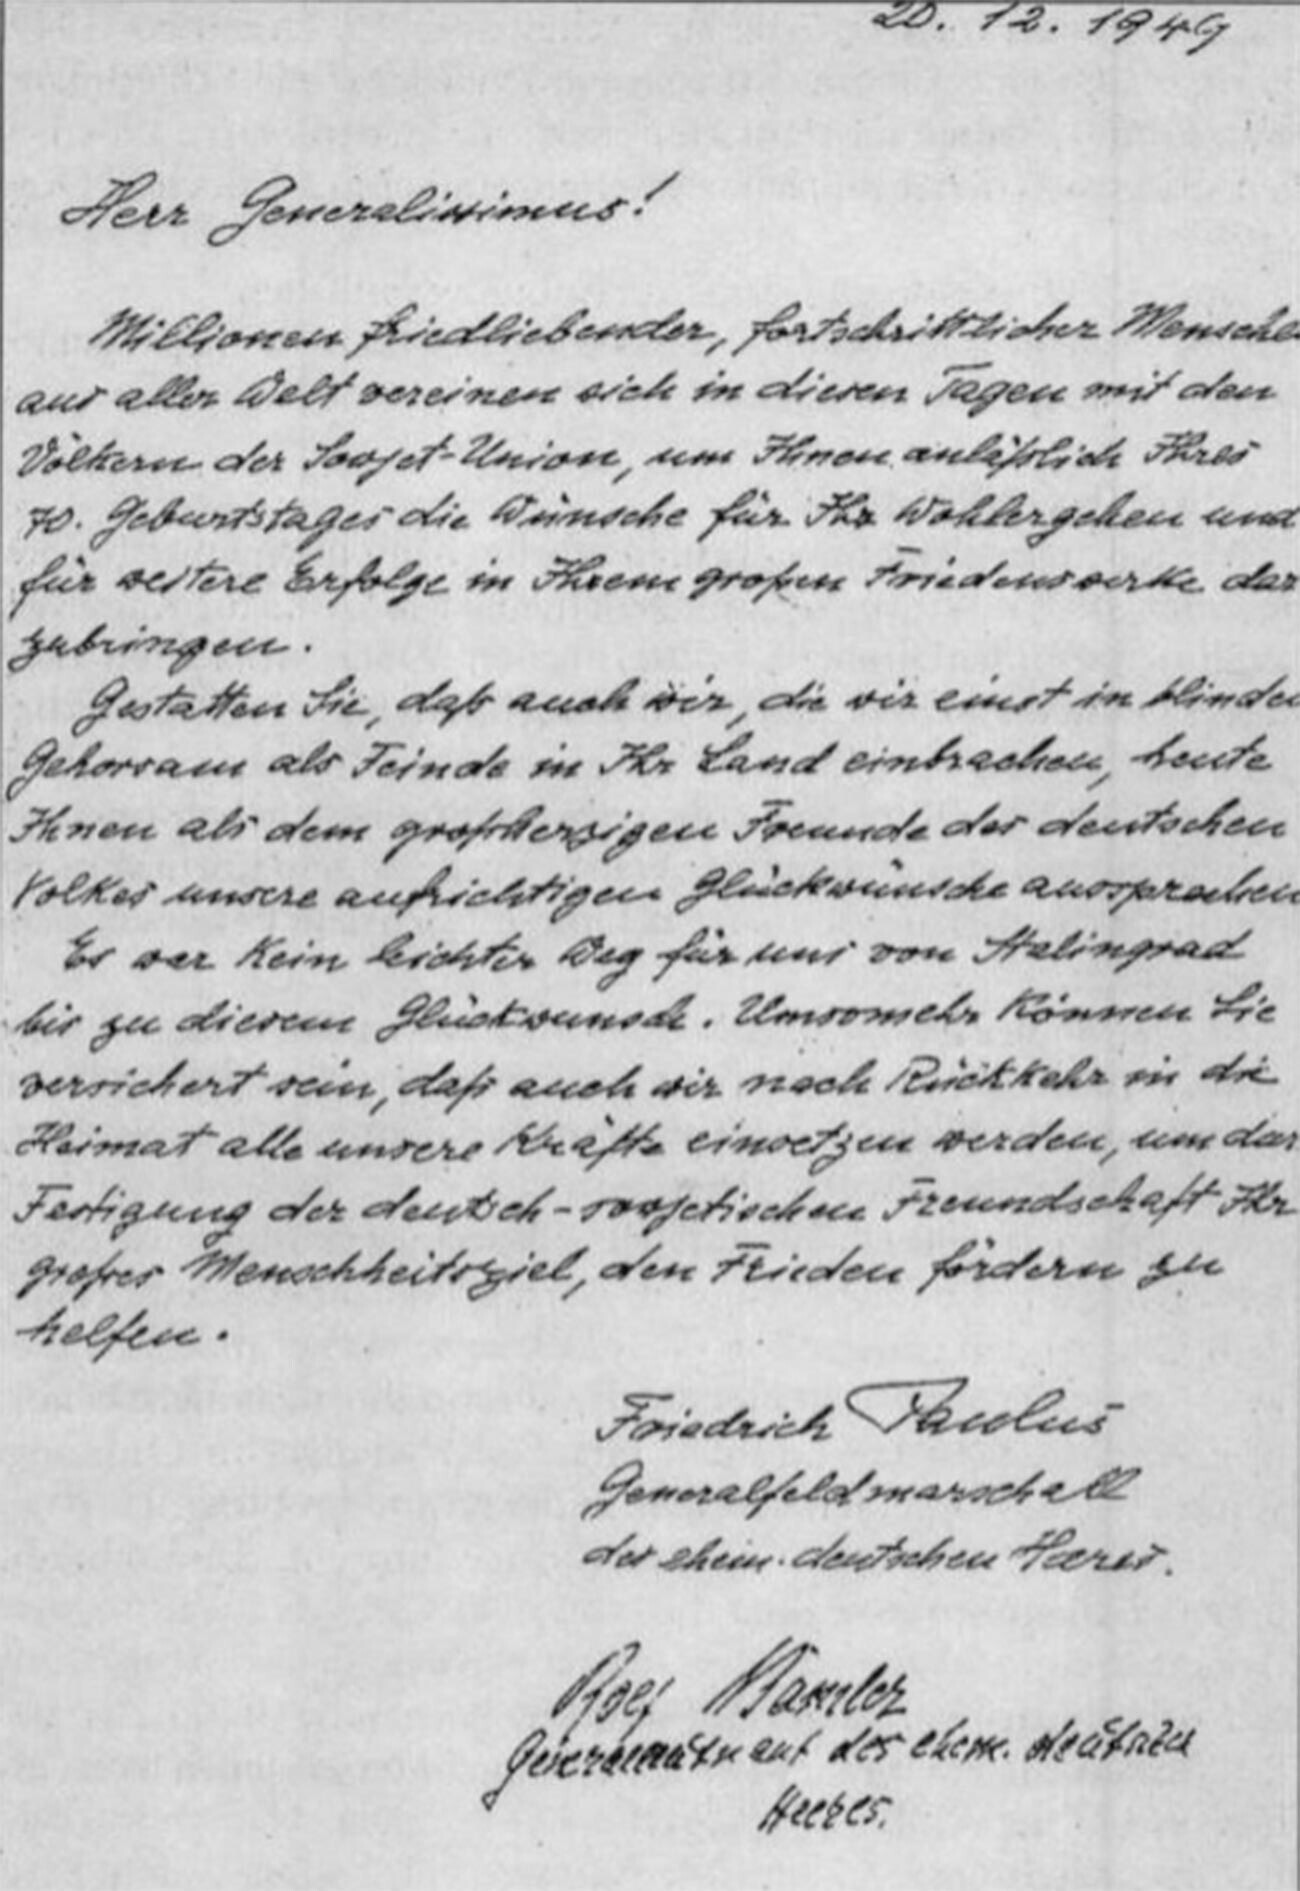 20. 12. 1949
Herr Generalissimus!
Millionen friedliebender, fortschrittlicher Mensche
aus aller Welt vereinen sich in diesen Tagen mit den
Völkern der Sowjet-Union, um Ihnen anläßlich Ihres
70. Geburtstages die Wünsche für Ihr Wohlergehen und
für weitere Erfolge in Ihrem großen Friedenswerke dar
zubringen.
Gestatten Sie, daß auch wir, die wir einst in blinden
Gehorsam als Feinde in Ihr Land einbrachen, heute
Ihnen als dem großherzigen Freunde des deutschen
Volkes unsere aufrichtigen Glückwünsche aussprechen
Es war kein leichter Weg für uns von Stalingrad
bis zu diesem Glückwunsch. Umsomehr können Sie
versichert sein, daß auch wir nach Rückkehr in die
Heimat alle unsere Kräfte einsetzen werden, um dur
Festigung der deutsch-sowjetischen Freundschaft Ihr
großes Menschheitsziel, den Frieden fördern zu
helfen.
Friedrich Paulus
Generalfeldmarschall
des ehem. deutschen Heeres.
Generalleutnant des ehem. deutschen
Heeres.